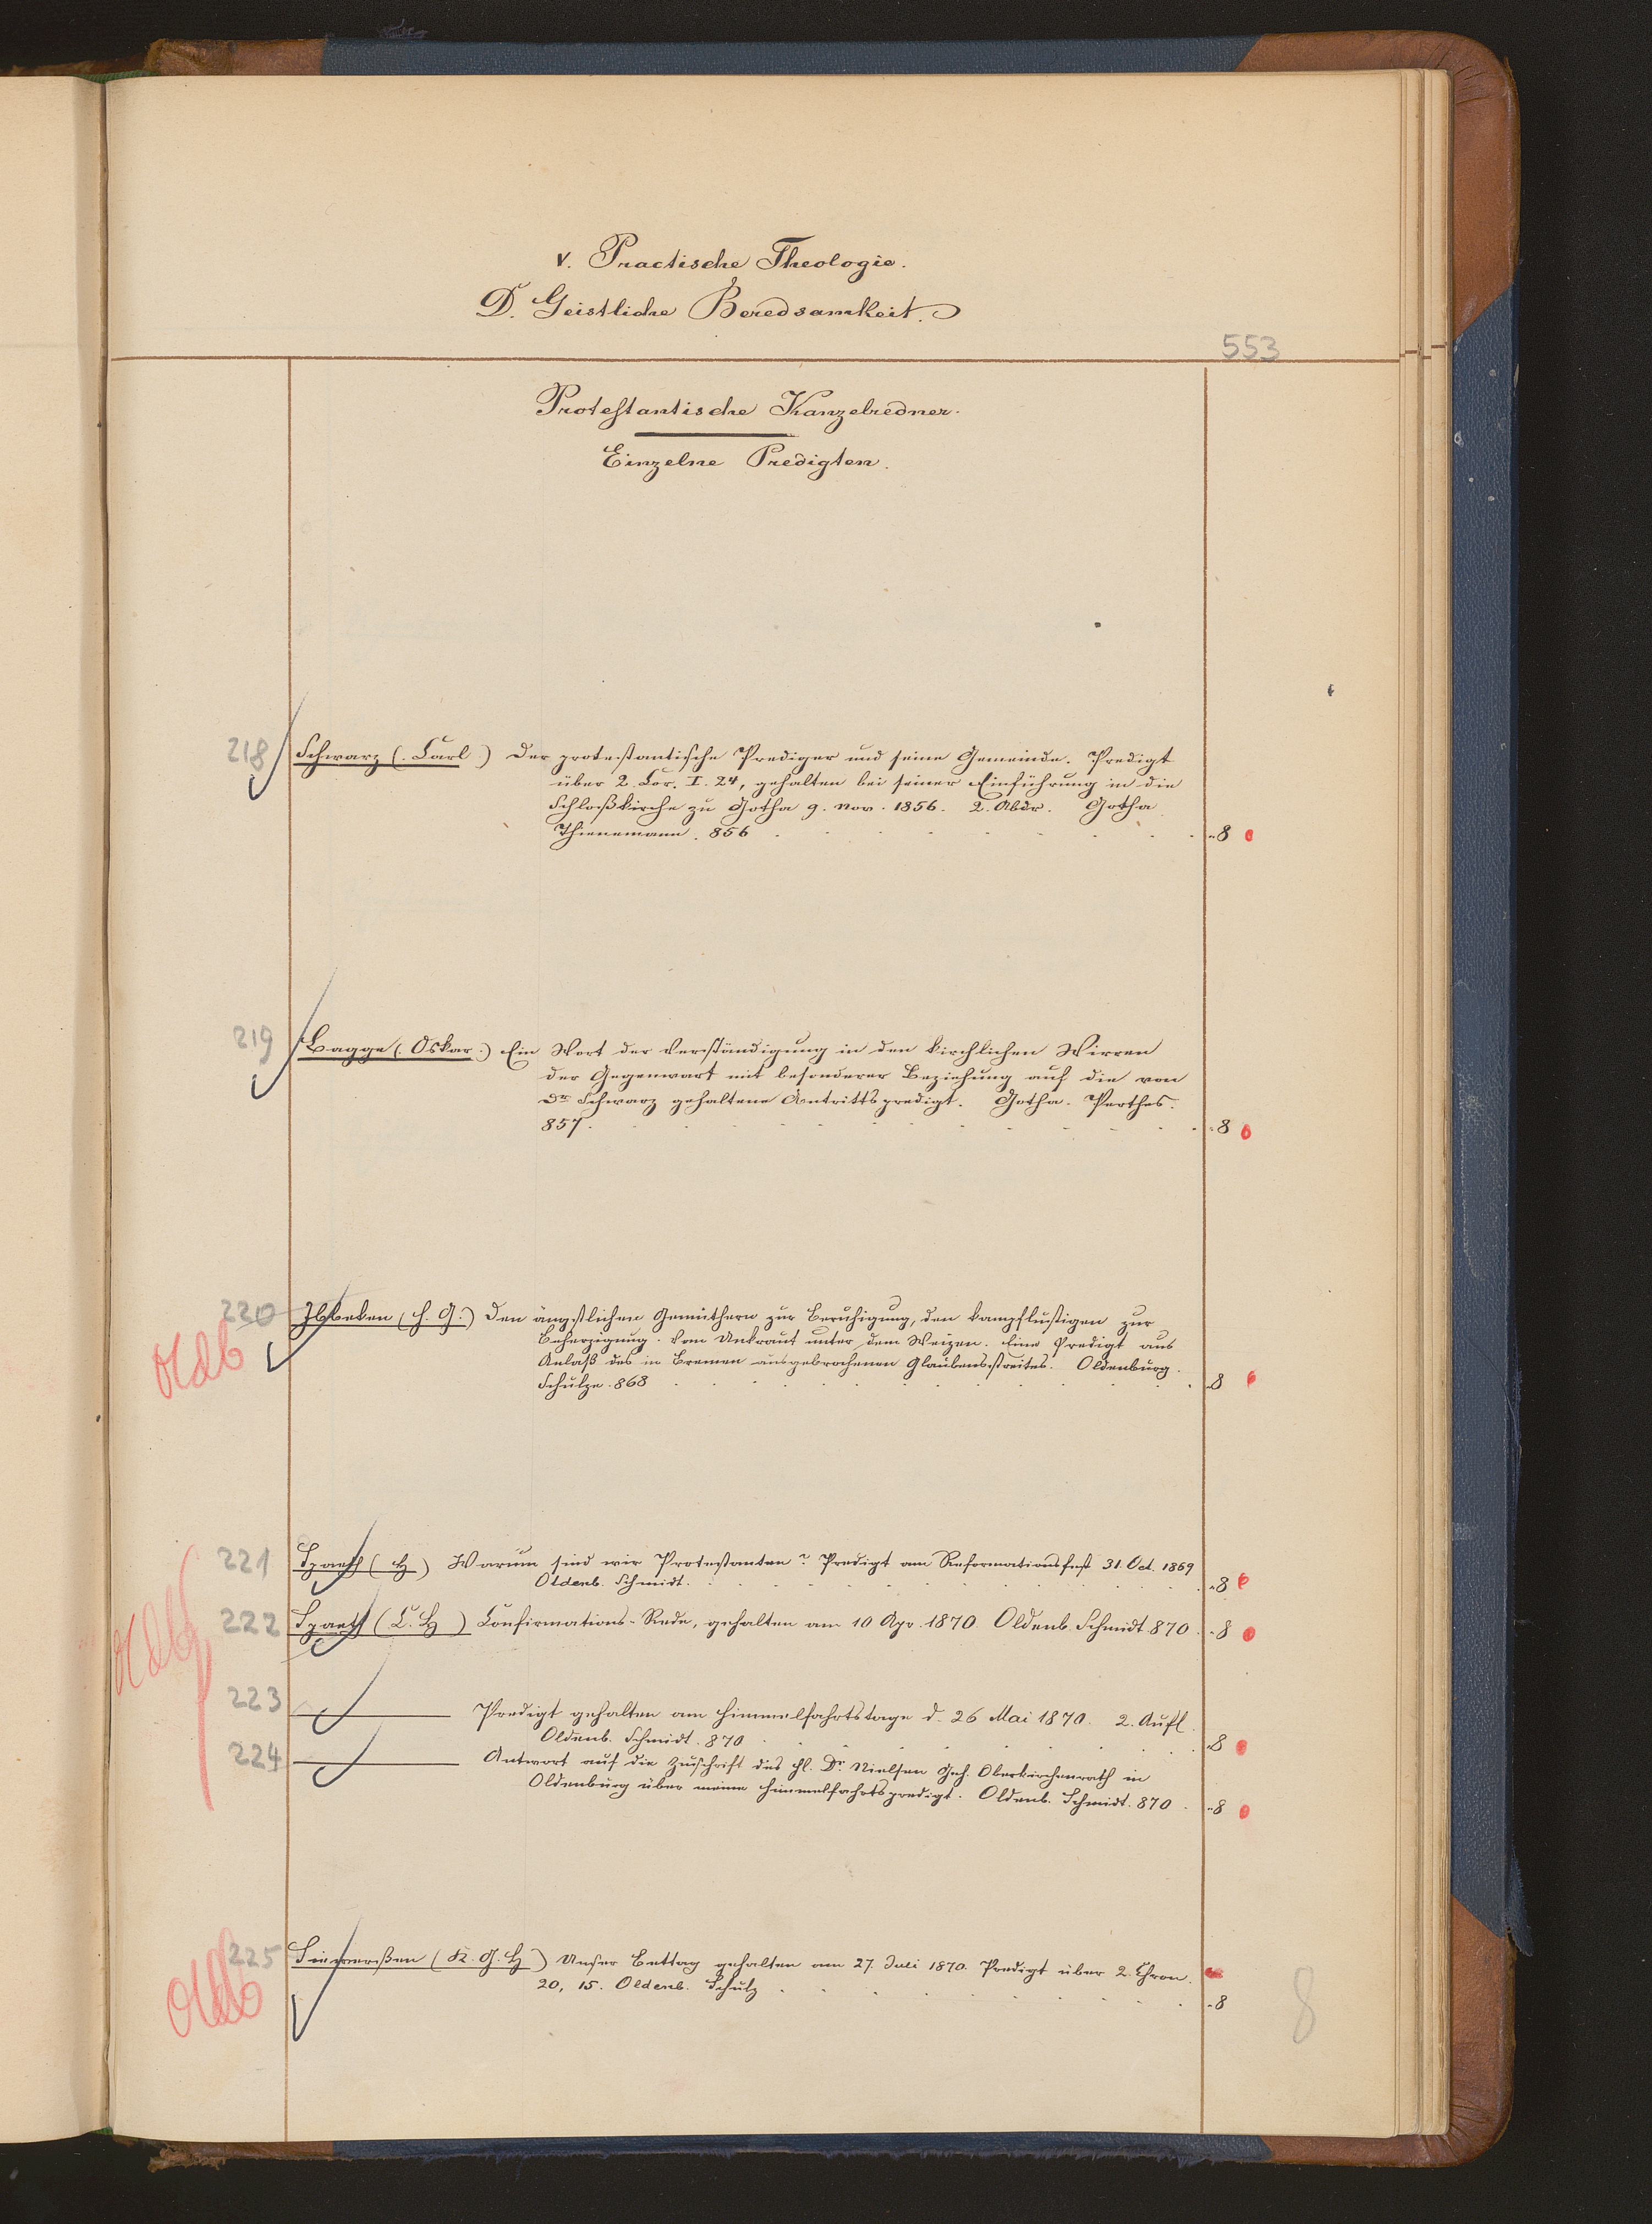 V. Practische Theologie.
D. Geistliche Beredsamkeit.
553
Protestantische Kanzelredner.
Einzelne Predigten.
218 Schwarz (Carl) Der protestantische Prediger und seine Gemeinde. Predigt
über 2. Cor. I. 24, gehalten bei seiner Einführung in die
Schloßkirche zu Gotha 9. Nov. 1856. 2. Abdr. Gotha
Thienemann. 856 8
219 Bagge (Oskar) Ein Wort der Verständigung in den kirchlichen Wirren
der Gegenwart mit besonderer Beziehung auf die von
Dr Schwarz gehaltene Antrittspredigt. Gotha. Perthes.
857. 8
220 Ibbeken (H. G.) Den ängstlichen Gemüthern zur Beruhigung, den kampflustigen zur
Oldb Beherzigung. Vom Unkraut unter dem Weizen. Eine Predigt aus
Anlaß des in Bremen ausgebrochenen Glaubensstreites. Oldenburg.
Schulze. 868 8
221 Spaeth (H) Warum sind wir Protestanten? Predigt am Reformationsfest 31. Oct. 1869
Oldenb. Schmidt. 8
222 Spaeth (C. H) Confirmations-Rede, gehalten am 10 Apr. 1870. Oldenb. Schmidt 870. 8
Oldb
223 Predigt gehalten am Himmelfahrtstage d. 26 Mai 1870. 2. Aufl.
Oldenb. Schmidt. 870 8
224 Antwort auf die Zuschrift des Hl. Dr. Nielsen Geh. Oberkirchenrath in
Oldenburg über meine Himmelfahrtspredigt. Oldenb. Schmidt. 870. 8
225 (K. G. H) Unser Bettag gehalten am 27. Juli 1870. Predigt über 2. Chron.
Oldb 20, 15. Oldenb. Schulz 8
8